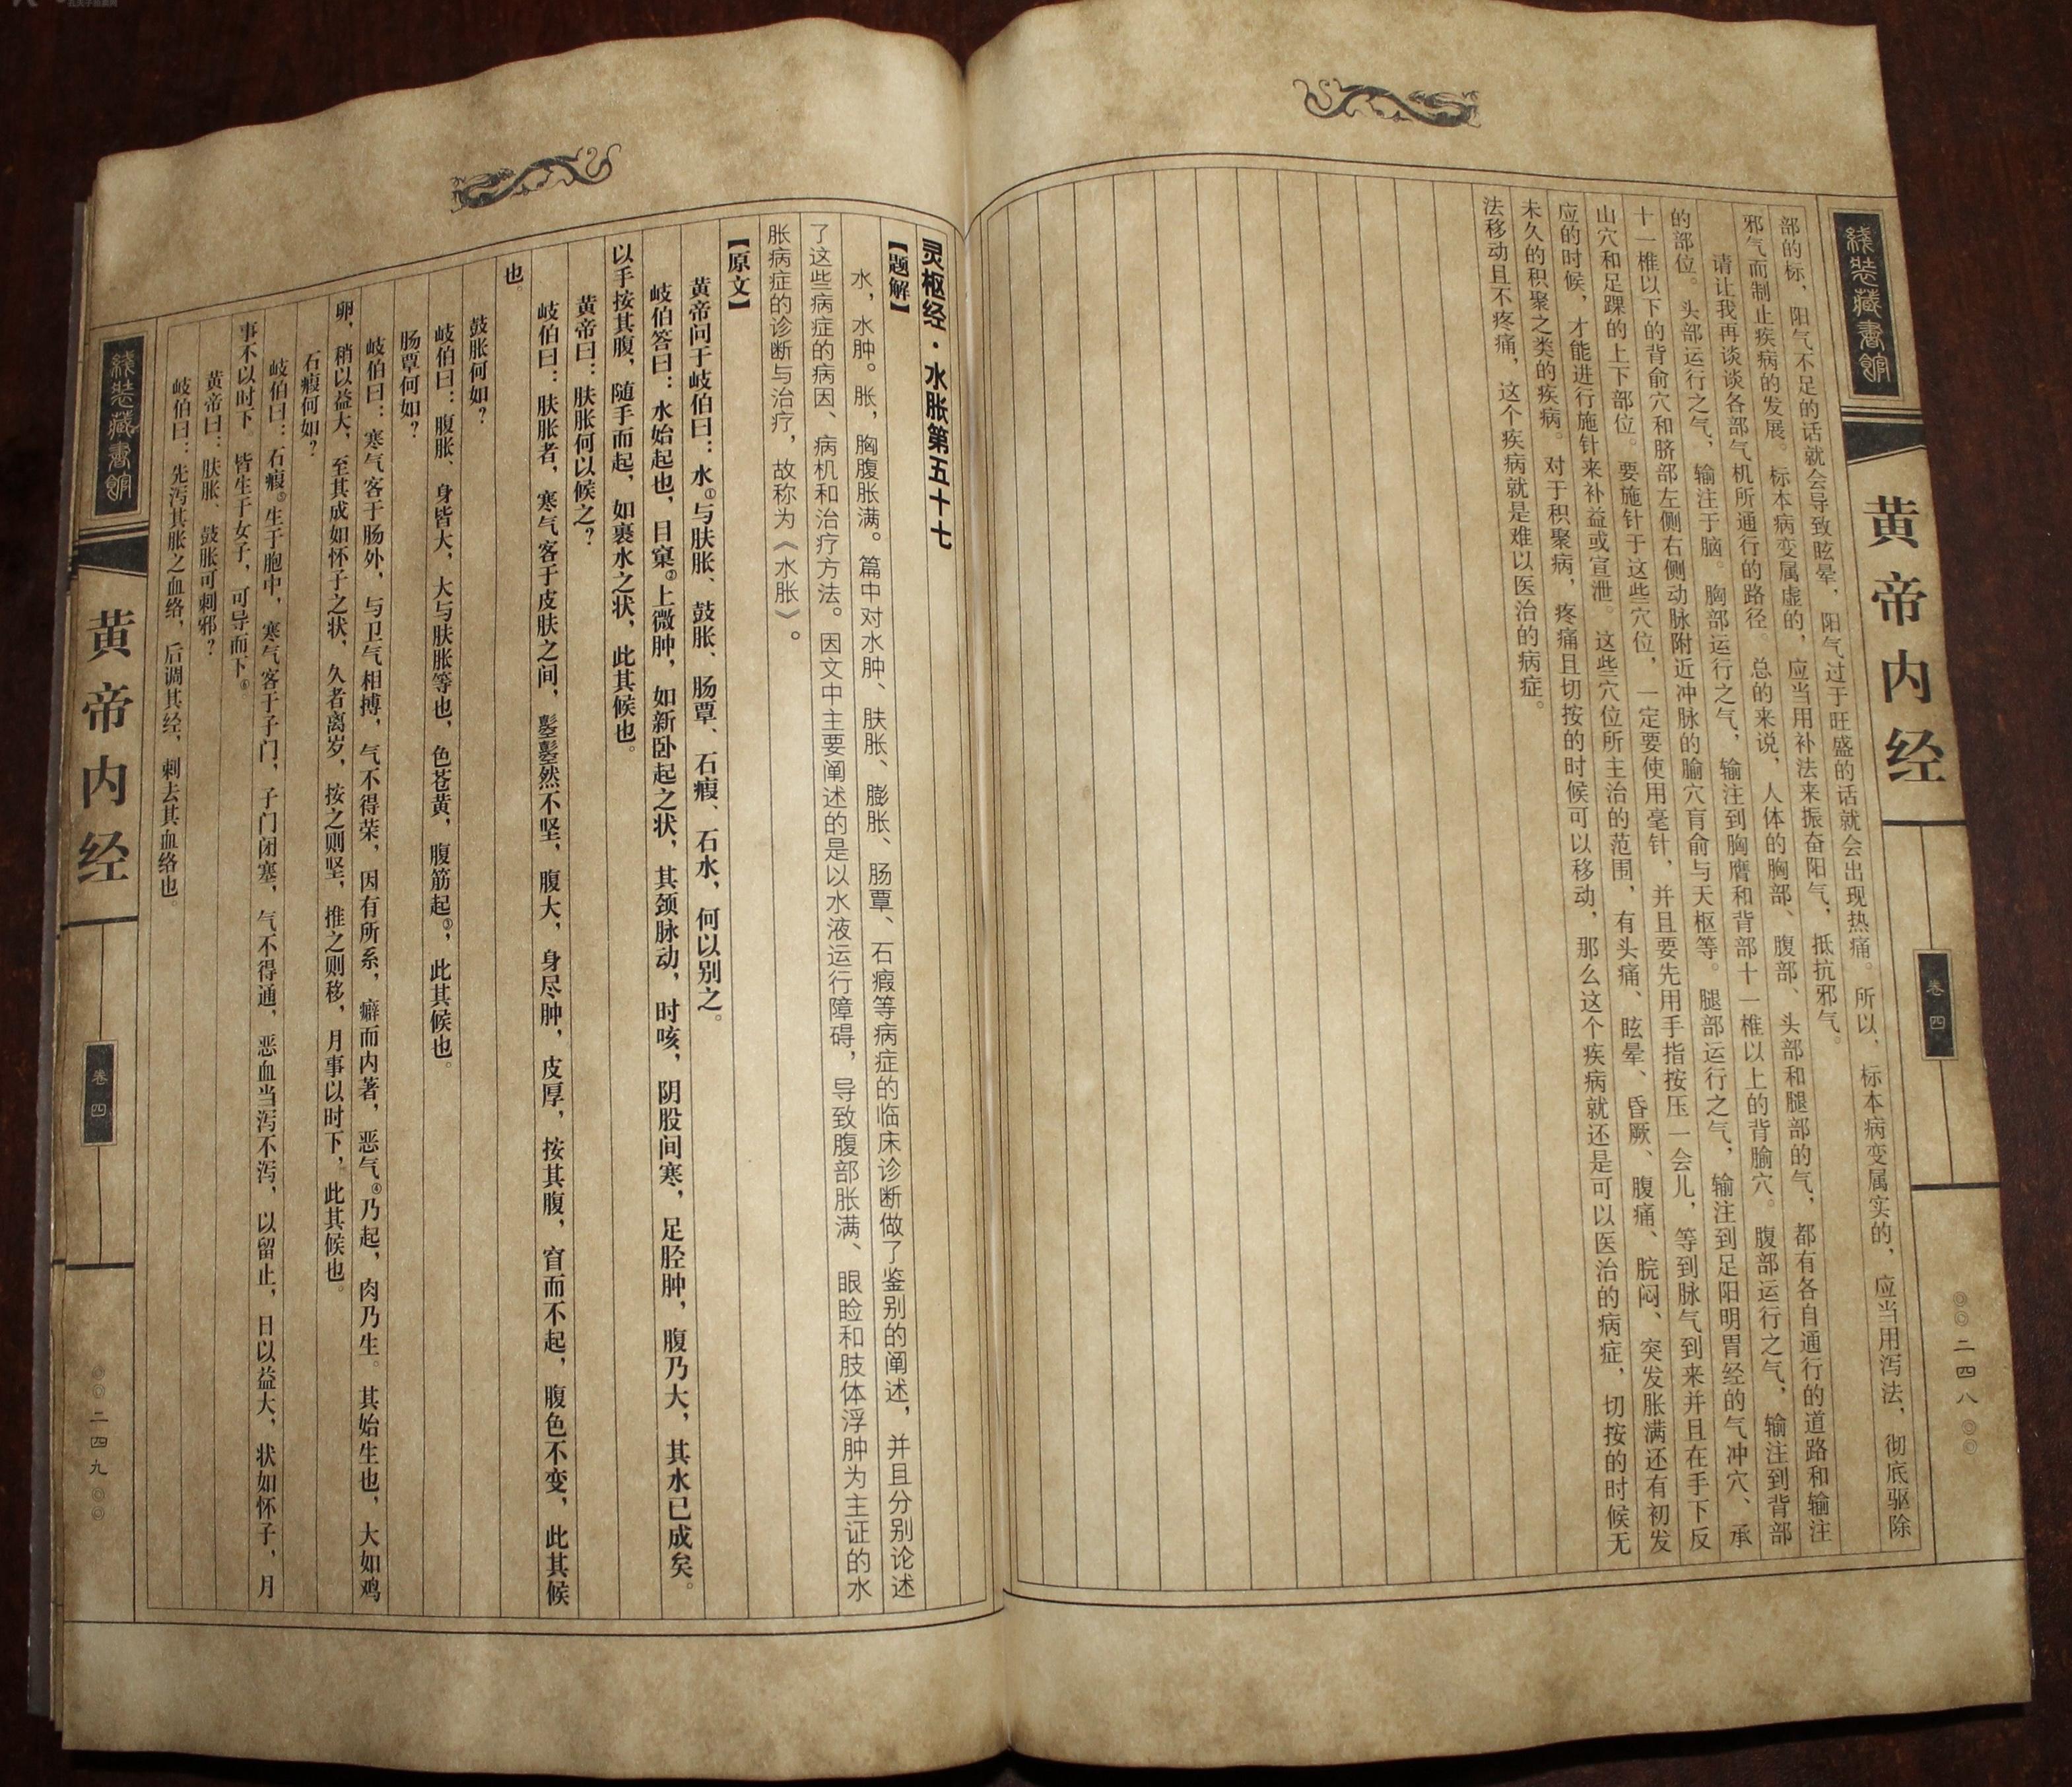 线装藏书馆
黄帝内经
卷四
〇〇二四八〇〇
部的标，阳气不足的话就会导致眩晕，阳气过于旺盛的话就会出现热痛。所以，标本病变属实的，应当用泻法，彻底驱除
邪气而制止疾病的发展。标本病变属虚的，应当用补法来振奋阳气，抵抗邪气。
请让我再谈谈各部气机所通行的路径。总的来说，人体的胸部、腹部、头部和腿部的气，都有各自通行的道路和输注
的部位。头部运行之气，输注于脑。胸部运行之气，输注到胸膺和背部十一椎以上的背腧穴。腹部运行之气，输注到背部
十一椎以下的背俞穴和脐部左侧右侧动脉附近冲脉的腧穴肓俞与天枢等。腿部运行之气，输注到足阳明胃经的气冲穴、承
山穴和足踝的上下部位。要施针于这些穴位，一定要使用毫针，并且要先用手指按压一会儿，等到脉气到来并且在手下反
应的时候，才能进行施针来补益或宣泄。这些穴位所主治的范围，有头痛、眩晕、昏厥、腹痛、脘闷、突发胀满还有初发
未久的积聚之类的疾病。对于积聚病，疼痛且切按的时候可以移动，那么这个疾病就还是可以医治的病症，切按的时候无
法移动且不疼痛，这个疾病就是难以医治的病症。
灵枢经·水胀第五十七
【题解】
水，水肿。胀，胸腹胀满。篇中对水肿、肤胀、膨胀、肠覃、石瘕等病症的临床诊断做了鉴别的阐述，并且分别论述
了这些病症的病因、病机和治疗方法。因文中主要阐述的是以水液运行障碍，导致腹部胀满、眼睑和肢体浮肿为主证的水
胀病症的诊断与治疗，故称为《水胀》。
【原文】
黄帝问于岐伯曰：水①与肤胀、鼓胀、肠覃、石瘕、石水，何以别之。
岐伯答曰：水始起也，目窠②上微肿，如新卧起之状，其颈脉动，时咳，阴股间寒，足胫肿，腹乃大，其水已成矣。
以手按其腹，随手而起，如裹水之状，此其候也。
黄帝曰：肤胀何以候之？
岐伯曰：肤胀者，寒气客于皮肤之间，鼟鼟然不坚，腹大，身尽肿，皮厚，按其腹，窅而不起，腹色不变，此其候
也。
鼓胀何如？
岐伯曰：腹胀、身皆大，大与肤胀等也，色苍黄，腹筋起③，此其候也。
肠覃何如？
岐伯曰：寒气客于肠外，与卫气相搏，气不得荣，因有所系，癖而内著，恶气④乃起，肉乃生。其始生也，大如鸡
卵，稍以益大，至其成如怀子之状，久者离岁，按之则坚，推之则移，月事以时下，此其候也。
石瘕何如？
岐伯曰：石瘕⑤生于胞中，寒气客于子门，子门闭塞，气不得通，恶血当泻不泻，以留止，日以益大，状如怀子，月
事不以时下，皆生于女子，可导而下⑥。
黄帝曰：肤胀、鼓胀可刺邪？
岐伯曰：先泻其胀之血络，后调其经，刺去其血络也。
线装藏书馆
黄帝内经
卷四
〇〇二四九〇〇